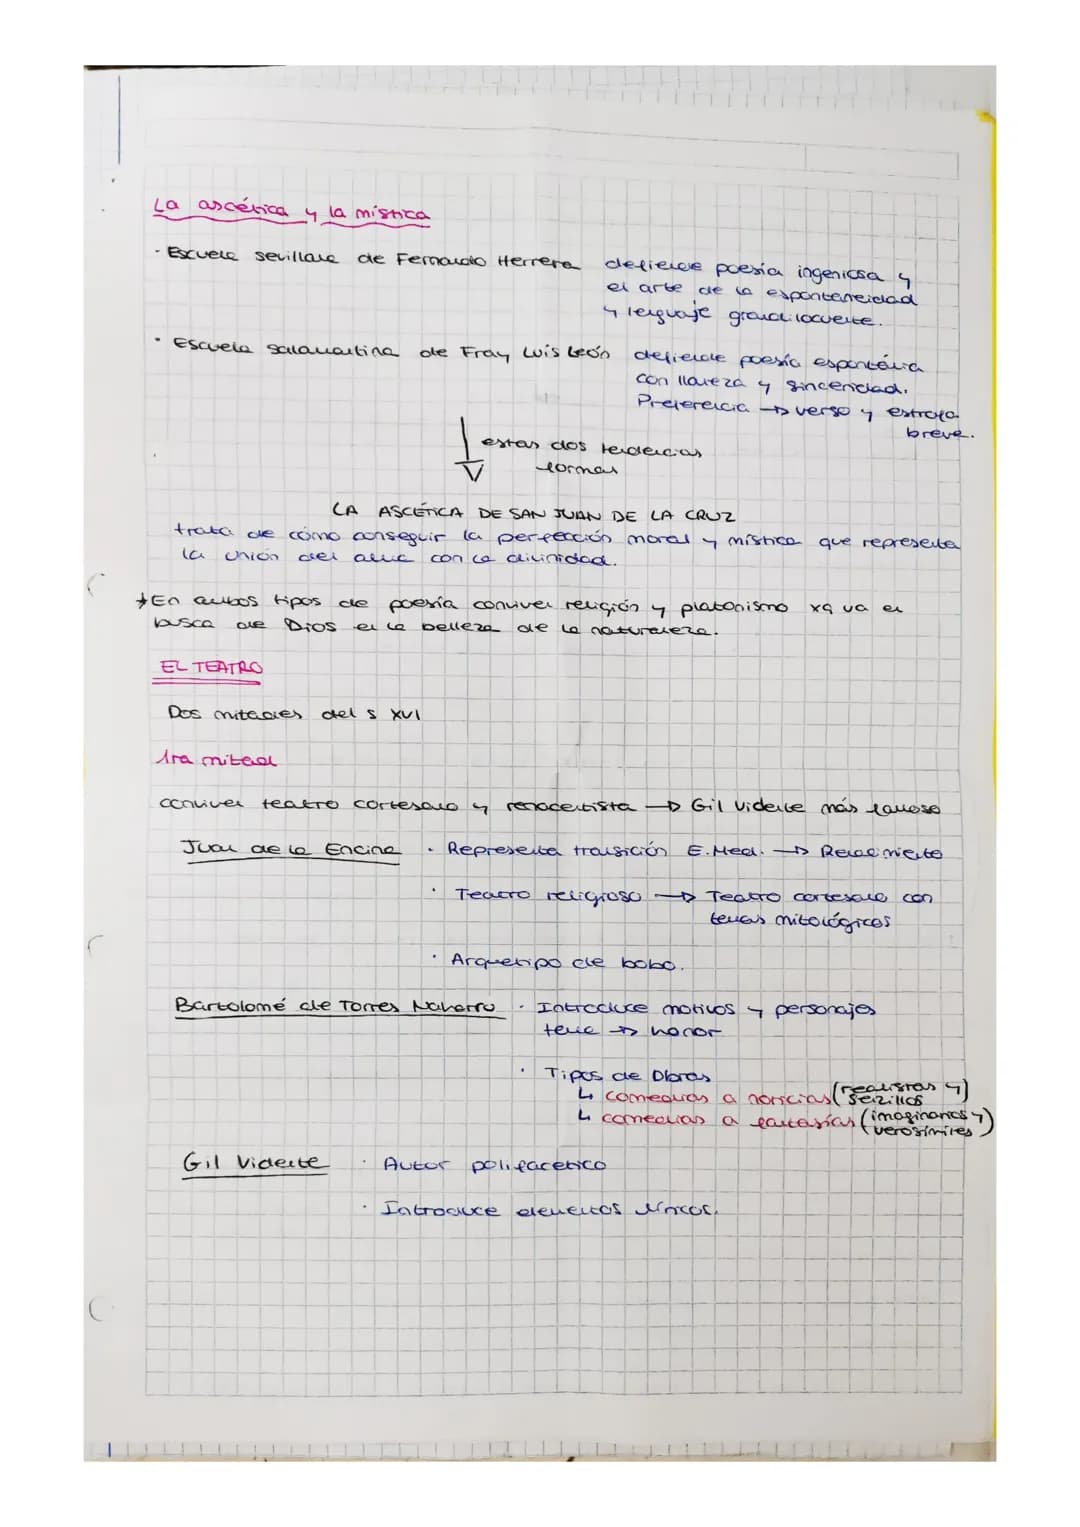 La ascética y la mística
· Escuela sevillana de Fernando Herrera defiende poesía ingeniosa y
el arte de la espontaneidad
y lenguaje grandilocuente.
· Escuela salamantina de Fray Luis León defiende poesía espontánia
con llaneza y sinceridad.
Preferencia → verso y estrofa
breve.
estas dos tendencias
forman
LA ASCÉTICA DE SAN JUAN DE LA CRUZ
trata de cómo conseguir la perfección moral y mística que representa
la unión del alma con la divinidad.
*En ambos tipos de poesía conviven religión y platonismo xq va en
busca de Dios en la belleza de la naturaleza.
EL TEATRO
Dos mitades del s XVI
1ra mitad
conviven teatro cortesano y renacentista → Gil Vidente más famoso
Juan de la Encina · Representa transición E.Med. → Renacimiento
· Teatro religioso → Teatro cortesano con
temas mitológicos
· Arquetipo de bobo.
Bartolomé de Torres Naharro · Introduce motivos y personajes
tema → honor
· Tipos de Obras
↳ comedias a noticias (realistas y
sencillos)
↳ comedias a fantasías (imaginarios y
verosímiles)
Gil Vidente · Autor polifacético
· Introduce elementos líricos.